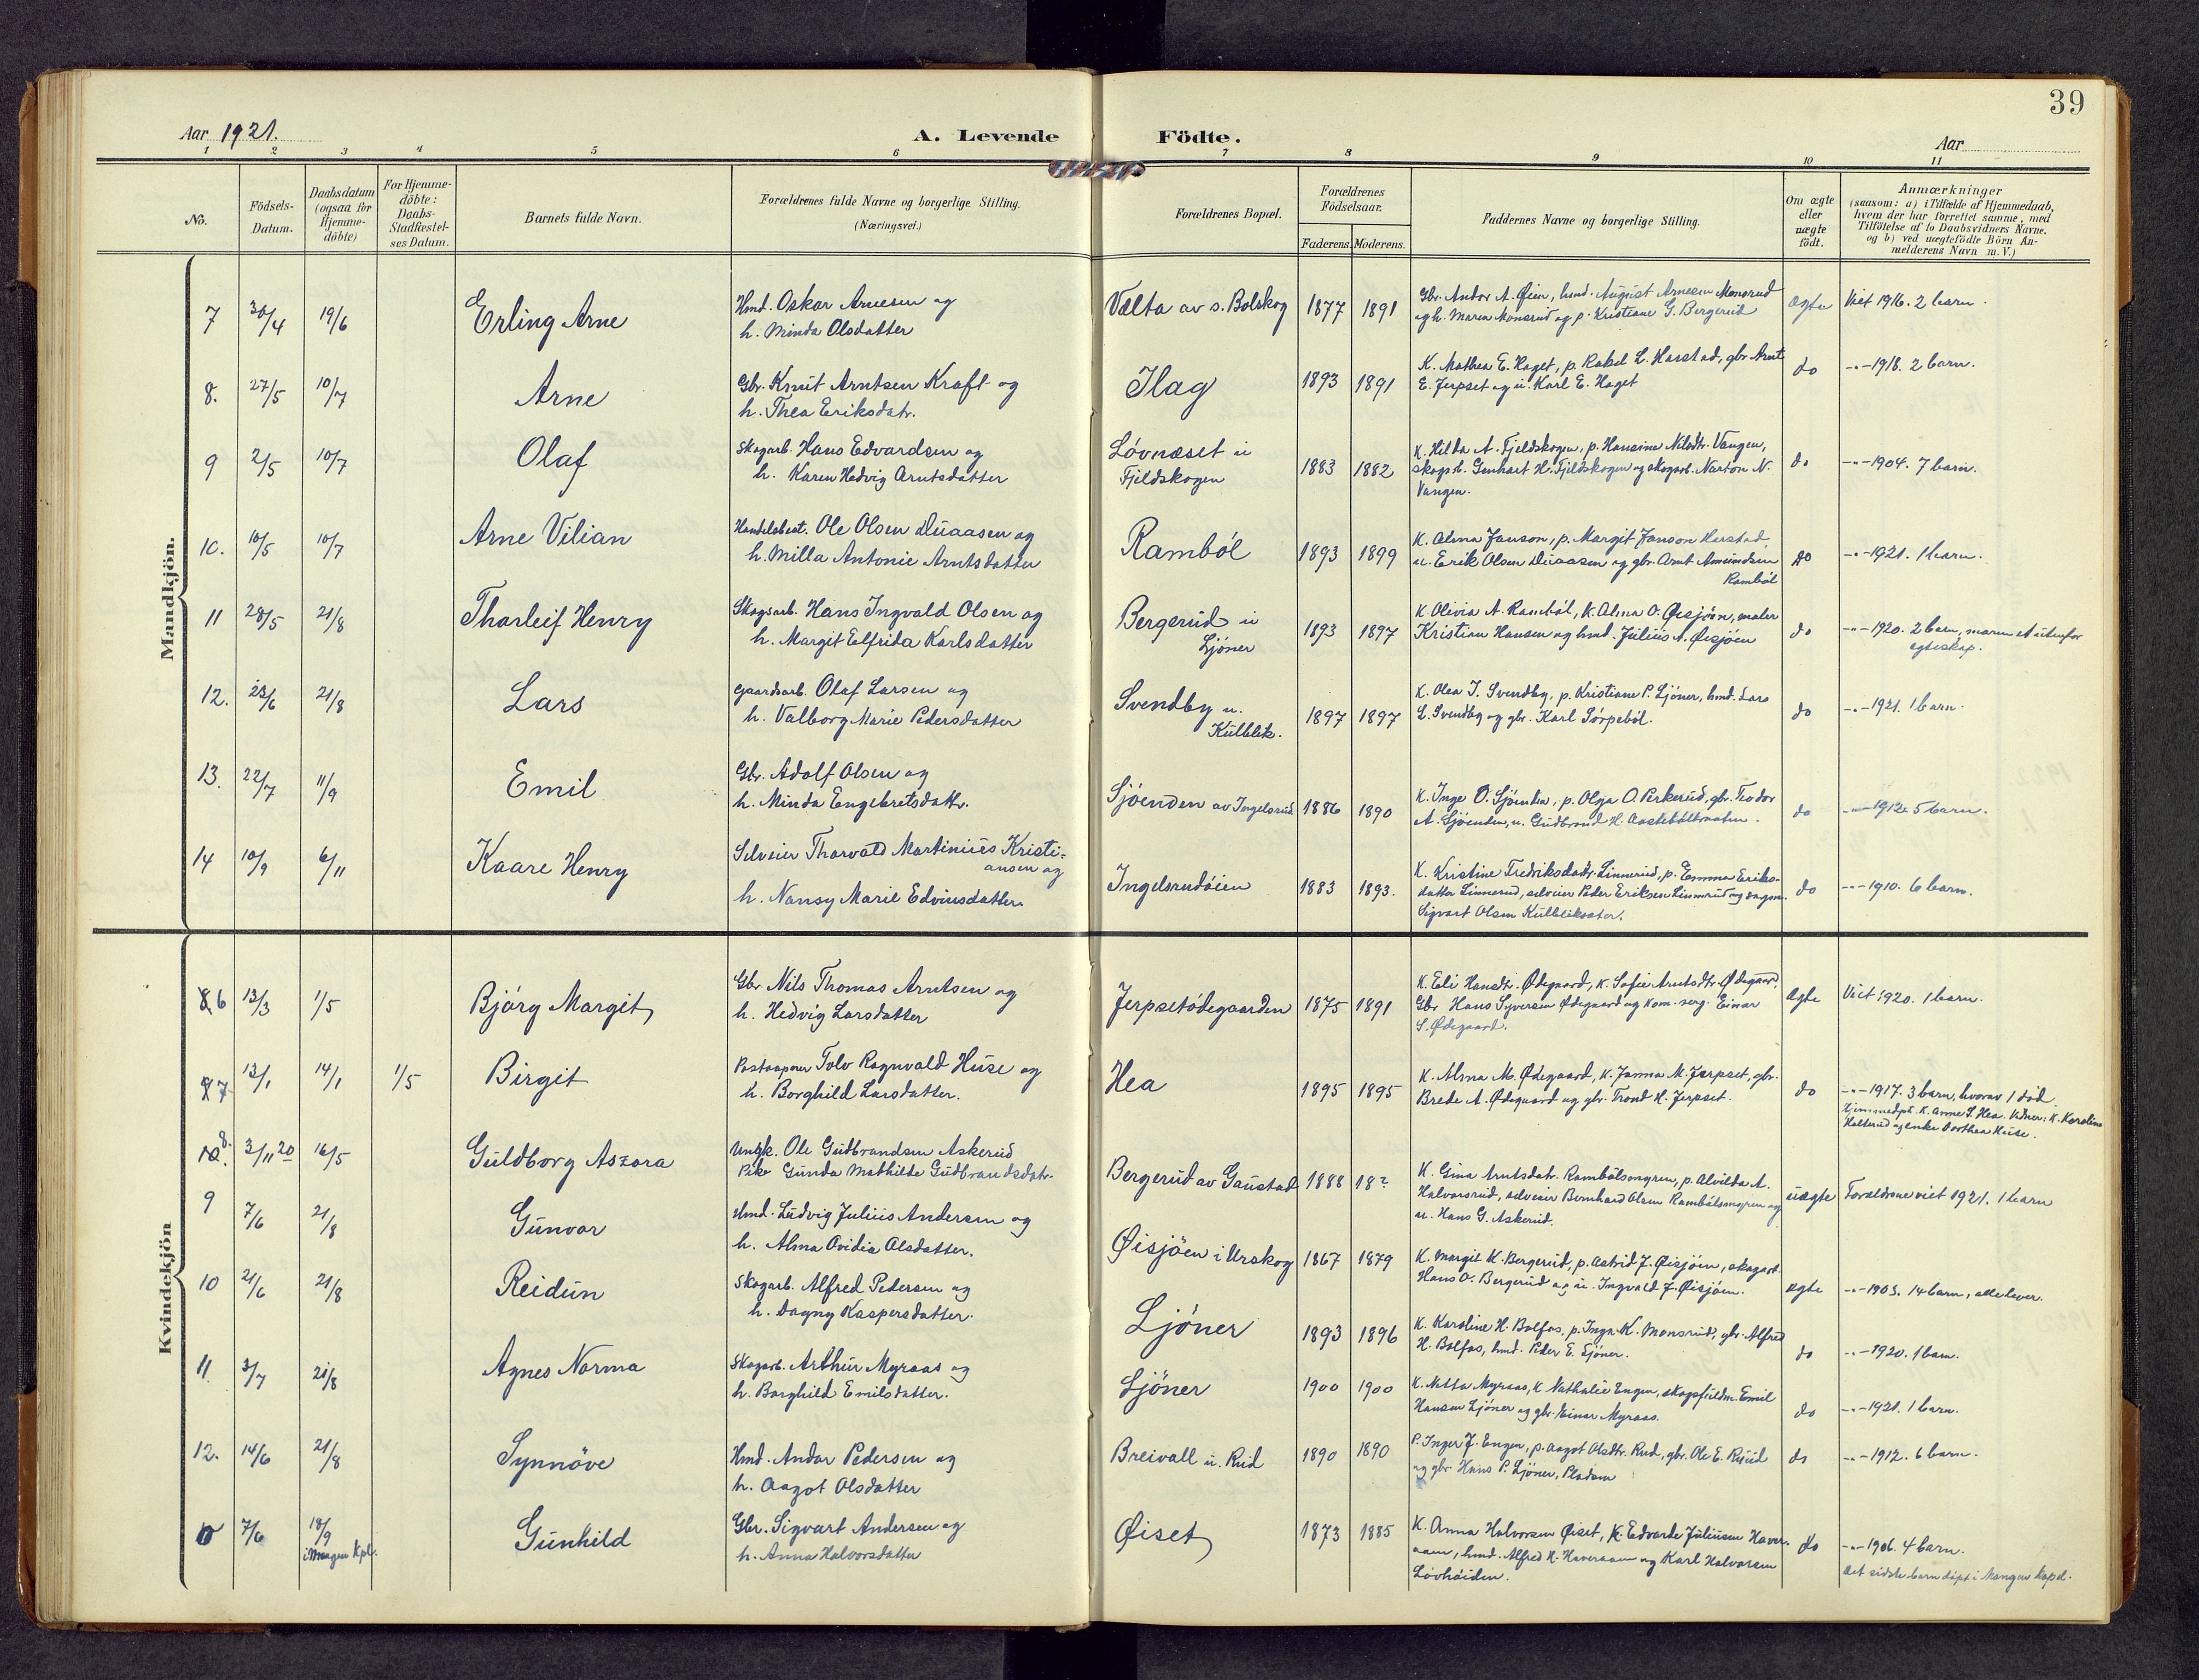 39
Aar 1921.
A. Levende Födte.
Aar
1 2 3 4 5 6 7 8 9 10 11
No.
Födsels-
Datum.
Daabsdatum
(ogsaa for
Hjemme-
döbte)
For Hjemme-
döbte:
Daabs-
Stadfæstel-
ses Datum.
Barnets fulde Navn.
Forældrenes fulde Navne og borgerlige Stilling.
(Næringsvei.)
Forældrenes Bopæl.
Forældrenes
Födselsaar.
Faderens. Moderens.
Faddernes Navne og borgerlige Stilling.
Om ægte
eller
uægte
födt.
Anmærkninger
(saasom: a) i Tilfælde af Hjemmedaab,
hvem der har forrettet samme, med
Tilföielse af to Daabsvidners Navne.
og b) ved uægtefödte Börn An-
melderens Navn m.V.)
Mandkjön.
7 30/4 19/6 Erling Arne
Hmd. Oskar Arnesen og
h. Minda Olsdatter
Valta av s. Bolskog 1877 1891
Gbr. Andor A. Øien, hmd. August Arnesen Monsrud
og h. Maren Monsrud og p. Kristiane G. Bergerud
ægte Viet 1916. 2 barn.
8. 27/5 10/7 Arne
Gbr. Knut Arntsen Kraft og
h. Thea Eriksdatr.
Ilag 1893 1891
K. Mathea E. Haget, p. Rakel L. Harstad, gbr. Arnt
E. Jerpset og u. Karl E. Haget
do -"- 1918. 2 barn.
9 2/5 10/7 Olaf
Skogarb. Hans Edvardsen og
h. Karen Hedvig Arntsdatter
Lövnæset u
Fjeldskogen
1883 1882
K. Hilda A. Fjeldskogen, p. Hansine Nilsdtr. Vangen,
skogarb. Genhart H. Fjeldskogen og skogarb. Narton N.
Vangen.
do -"- 1904. 7 barn.
10. 10/5 10/7 Arne Vilian
Handelsbest. Ole Olsen Duaasen og
h. Milla Antonie Arntsdatter
Ramböl 1893 1899
K. Alma Janson, p. Margit Janson Harstad,
u. Erik Olsen Duaasen og gbr. Arnt Amundsen
Ramböl
do -"- 1921. 1 barn.
11 28/5 21/8 Thorleif Henry
Skogsarb. Hans Ingvald Olsen og
h. Margit Elfrida Karlsdatter
Bergerud u
Ljöner
1893 1897
K. Olivia A. Ramböl, K. Alma O. Øisjöen, maler
Kristian Hansen og hmd. Julius A. Øisjöen
do -"- 1920. 2 barn, moren et utenfor
egteskap.
12. 23/6 21/8 Lars
Gaardsarb. Olaf Larsen og
h. Valborg Marie Pedersdatter
Svendby u.
Kulblik.
1897 1897
K. Olea I. Svendby, p. Kristiane P. Ljöner, hmd. Lars
L. Svendby og gbr. Karl Sörpeböl.
do -"- 1921. 1 barn.
13. 22/7 11/9 Emil
Gbr. Adolf Olsen og
h. Minda Engebretsdattr.
Sjöenden av Ingelsrud 1886 1890
K. Inge O. Sjöenden, p. Olga O. Perkerud, gbr. Teodor
A. Sjöenden, u. Gudbrand H.
do -"- 1912. 5 barn.
14 10/9 6/11 Kaare Henry
Selveier Thorvald Martinius Kristi=
ansen og
h. Nansy Marie Edvinsdatter.
Ingelsrudöien 1883 1893.
K. Kristine Fredriksdatr. Linnerud, p. Emma Eriks-
datter Linnerud, selveier Peder Eriksen Linnerud og
Sigvart Olsen Kulbliksæter.
do -"- 1910. 6 barn.
Kvindekjön
6 13/3 1/5 Bjórg Margit
Gbr Nils Thomas Arntsen og
h. Hedvig Larsdatter
Jerpsetödegaarden 1875 1891
K. Eli Hansdtr. Ødegaard, K. Sofie Arntsdtr. Ødegaard,
Gbr Hans Syversen Ødegaard og kom. serg. Einar
S. Ødegaard.
ægte Viet 1920. 1 barn.
7 13/1 14/1 1/5 Birgit
Postaapner Tolv Ragnvald Huse og
h. Borghild Larsdatter.
Hea 1895 1895
K. Alma M. Ødegaard, K. Janna M. Jerpset, gbr.
Brede A. Ødegaard og gbr. Trond H. Jerpset.
do -"- 1917. 3 barn, hvorav 1 död.
Hjemmedpt. K. Anne S. Hea. Vidner: K. Karoline
Halterud og enke Dorthea Huse.
8. 3/11 20 16/5 Guldborg Aszora
Ungk. Ole Gudbrandsen Askerud
Pike Gunda Mathilde Gudbrandsdatr.
Bergerud av Gaustad 1888 18?
K. Gina Arntsdatr. Rambölsmyren, p. Alvilda A.
Halvorsrud, selveier Bernhard Olsen Rambölsmyren og
u. Hans G. Askerud.
uægte Forældrene viet 1921. 1 barn
9 7/6 21/8 Gunvor
Hmd. Ludvig Julius Andersen og
h. Alma Ovidia Olsdatter.
Øisjöen i Urskog 1867 1879
K. Margit K. Bergerud, p. Astrid J. Øisjöen, skogarb.
Hans O. Bergerud og u. Ingvald J. Øisjöen.
ægte -"- 1903. 14 barn, alle lever.
10 21/6 21/8 Reidun
Skogarb. Alfred Pedersen og
h. Dagny Kaspersdatter.
Ljöner 1893 1896
K. Karoline H. Bolfos, p. Inga K. Monsrud, gbr. Alfred
H. Bolfos, hmd. Peder E. Ljöner.
do -"- 1920. 1 barn.
11 3/7 21/8 Agnes Norma
Skogarb. Arthur Myraas og
h. Borghild Emilsdatter.
Ljöner 1900 1900
K. Netta Myraas, K Nathalie Engen, skogfuldm. Emil
Hansen Ljöner og gbr. Einar Myraas.
do -"- 1921. 1 barn.
12. 14/6 21/8 Synnöve
Hmd. Andor Pedersen og
h. Aagot Olsdatter
Breivall u. Rud 1890 1890
P. Inger J. Engen, p. Aagot Olsdtr. Rud, gbr. Ole E. Ruud
og gbr Hans P. Ljöner, Pladsen
do -"- 1912. 6 barn.
0 7/6 18/9
i Mangen Kpl.
Gunhild
Gbr. Sigvart Andersen og
h. Anna Halvorsdatter
Øiset 1873 1885
K. Anna Halvorsen Øiset, K. Edvarda Juliusen Haver-
aaen, hmd. Alfred H. Haveraaen og Karl Halvorsen
Lövhöiden.
do -"- 1906. 4 barn.
Det sidste barn döpt i Mangen Kapel.